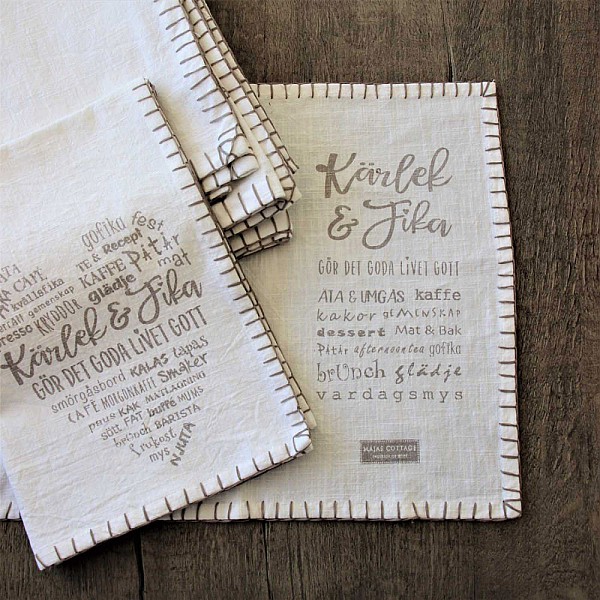 Kärlek
& Fika
GÖR DET GODA LIVET GOTT
ÄTA & UMGÅS kaffe
kakor GEMENSKAP
dessert Mat & Bak
Påtår afternoontea gofika
brunch glädje
vardagsmys
MAJAS COTTAGE
gofika fest
TE & Recept
KAFFE Påtår
kryddor glädje mat
gemenskap
Kärlek & Fika
GÖR DET GODA LIVET GOTT
smörgåsbord KALAS tapas
CAFÉ MORGONKAFFE Smaker
KAK MATLAGNING
sött FAT buffé MUMS
brunch BARISTA
frukost
mys
NJUTA